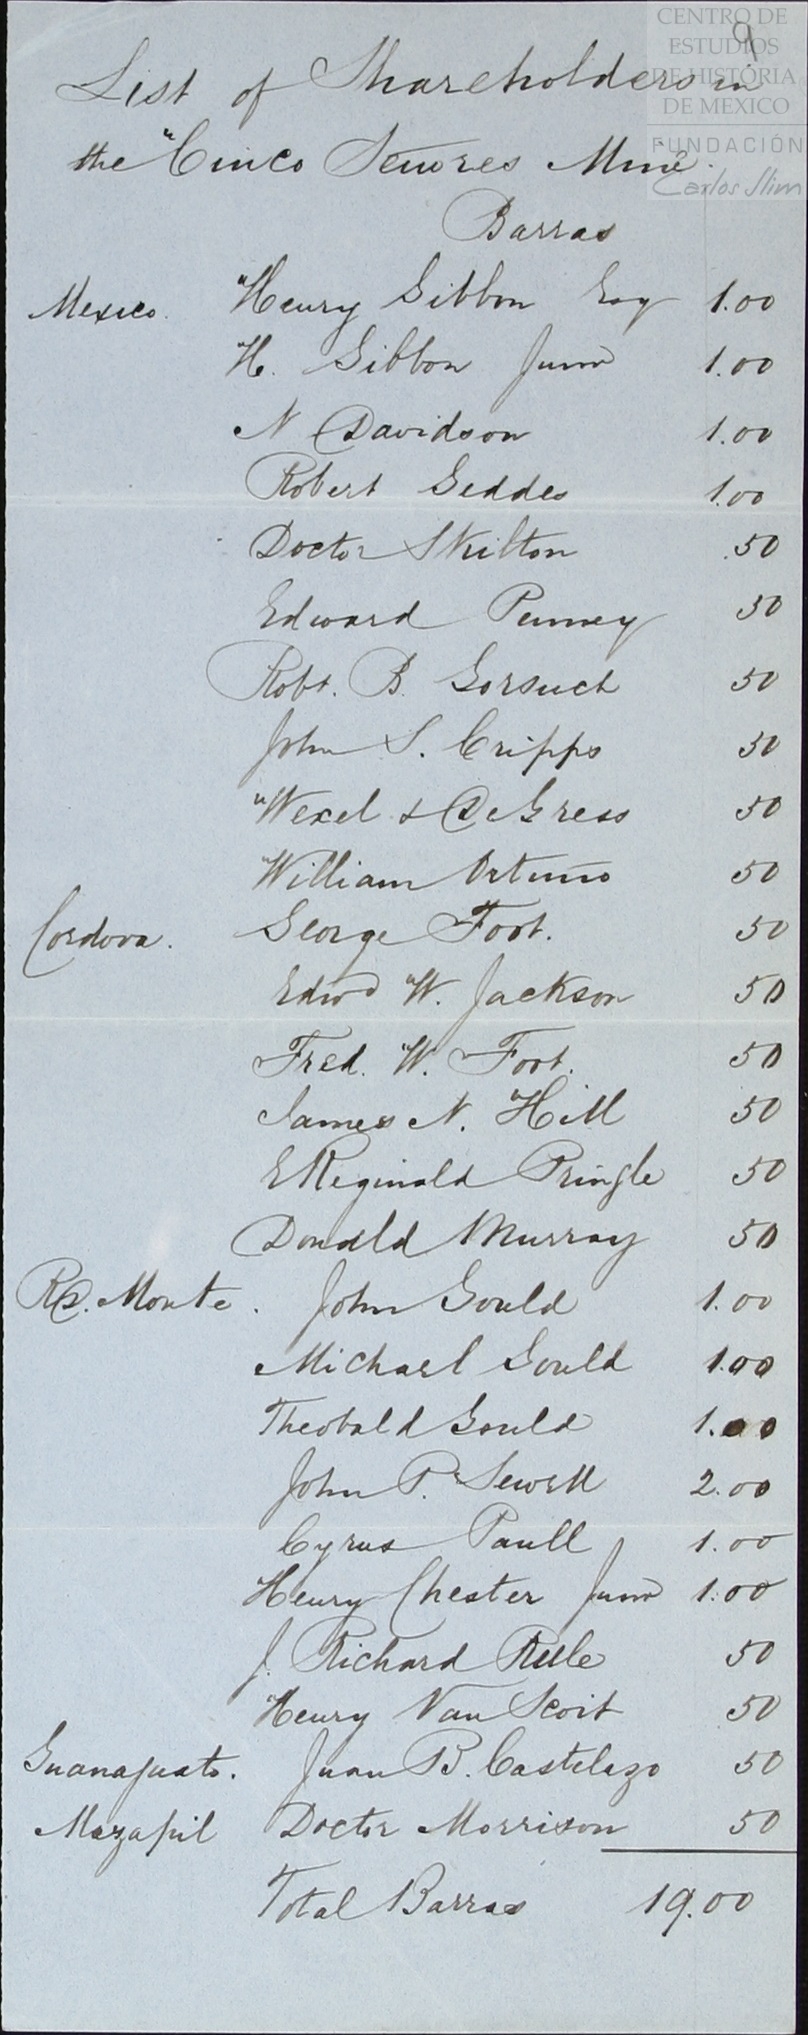 CENTRO DE
ESTUDIOS
DE HISTORIA
DE MEXICO
FUNDACIÓN
Carlos Slim
9
List of Shareholders in
the "Cinco Señores Mine
Barras
Mexico. Henry Gibbon Esq 1.00
H. Gibbon Junr 1.00
N Davidson 1.00
Robert Geddes 1.00
Doctor Skilton .50
Edward Penney 50
Robt. B. Gorsuch 50
John S. Cripps 50
Wexel & DeGress 50
William Ortuño 50
Cordova. George Foot. 50
Edwd W. Jackson 50
Fred. W. Foot. 50
James N. Hill 50
E Reginald Pringle 50
Donald Murray 50
Rl. Monte. John Gould 1.00
Michael Gould 1.00
Theobald Gould 1.00
John P. Sewell 2.00
Cyrus Paull 1.00
Henry Chester Junr 1.00
J. Richard Rule 50
Henry Van Scoit 50
Guanajuato. Juan B. Castelazo 50
Mazapil Doctor Morrison 50
Total Barras 19.00